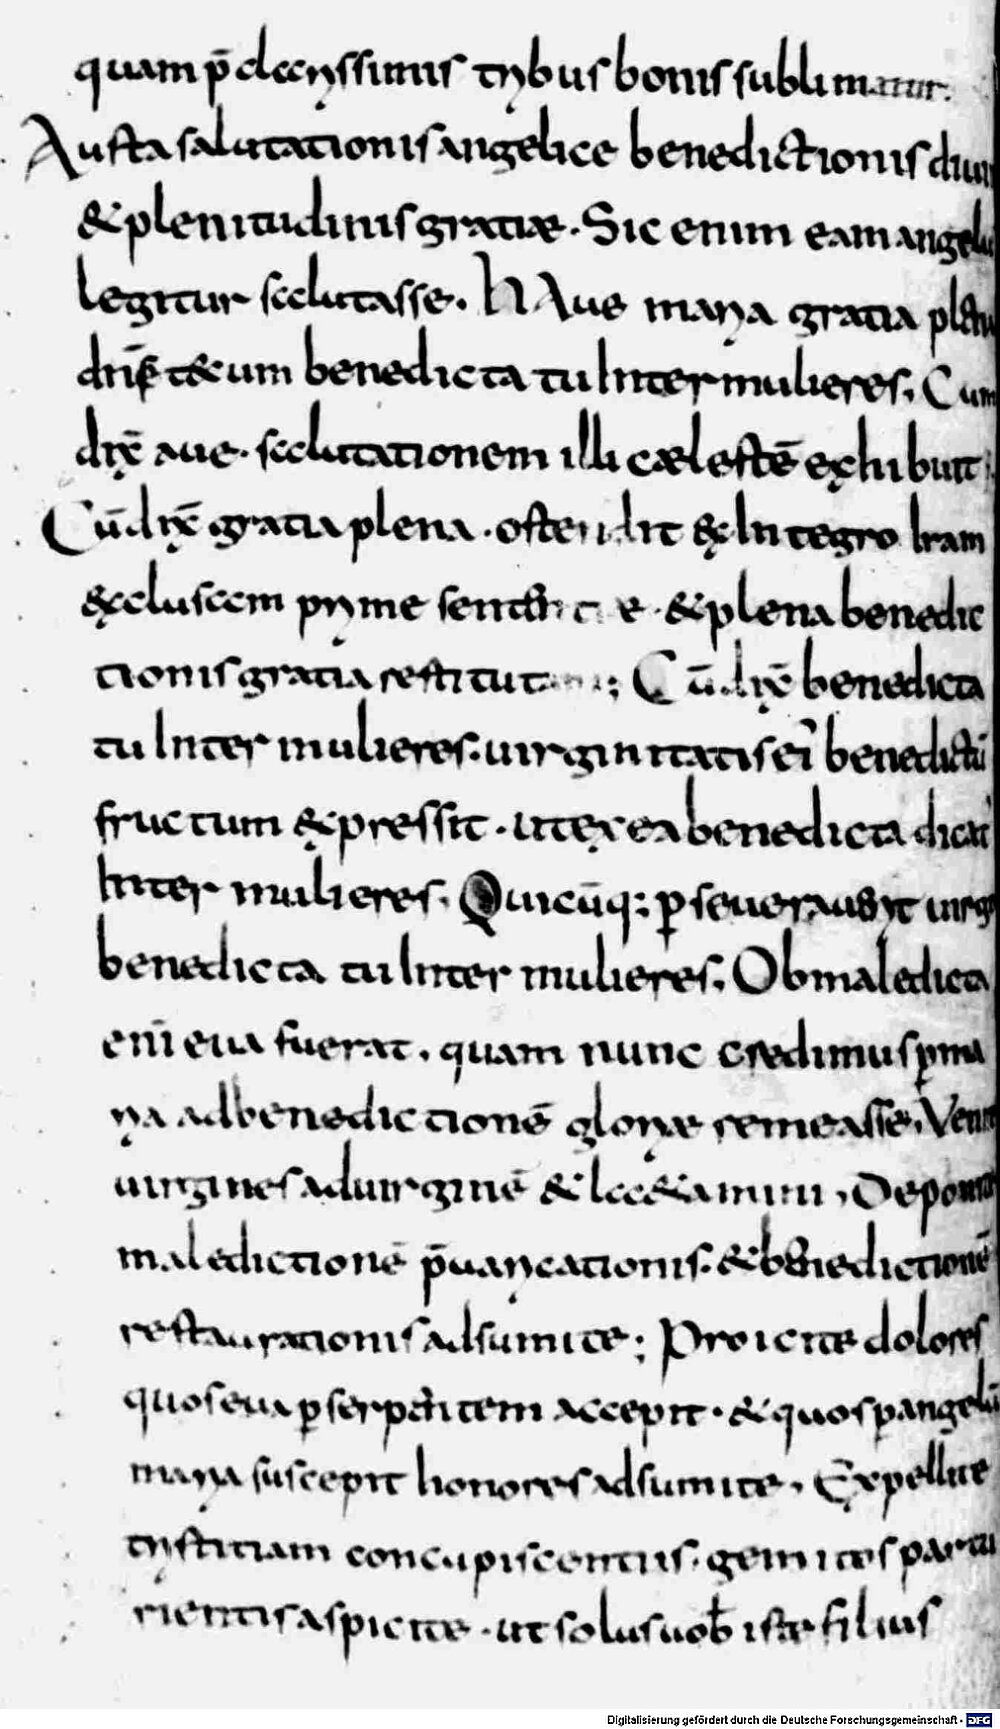 quam p̄clarissimis tribus bonis sublimatur.
Austa salutationis angelice benedictionis diui
& plenitudinis gratiæ. Sic enim eam angelu
legitur salutasse. H Aue maria gratia plen
dn̄s tecum benedicta tu inter mulieres. Cum
dix̄ aue. salutationem illi cælestē exhibuit
Cū dix̄ gratia plena. ostendit ex integro iram
exclusam prime sententiæ. & plena benedic
tionis gratia restitutam; Cū dix̄ benedicta
tu inter mulieres. uirginitatis ei benedictū
fructum expressit. ut ex ea benedicta dicat
inter mulieres. Quicūq; ꝑseuerauerit uirgo
benedicta tu inter mulieres. Ob maledicta
enī eua fuerat. quam nunc credimus ꝑ ma
ria ad benedictionē gloriæ remeasse. Veni
uirgines ad uirginē & lae&amini. Deponite
maledictionē p̄uaricationis. & benedictionē
restaurationis adsumite; Proicite dolores
quos eua ꝑ serpentem accepit. & quos ꝑ angelū
maria suscepit honores adsumite. Expellite
tristitiam concupiscentiis. gemites partu
rientis aspicite. ut solus uob iste filius
Digitalisierung gefördert durch die Deutsche Forschungsgemeinschaft - DFG